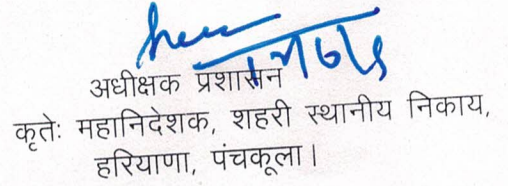 अधीक्षक प्रशासन
कृतेः महानिदेशक, शहरी स्थानीय निकाय,
हरियाणा, पंचकूला।